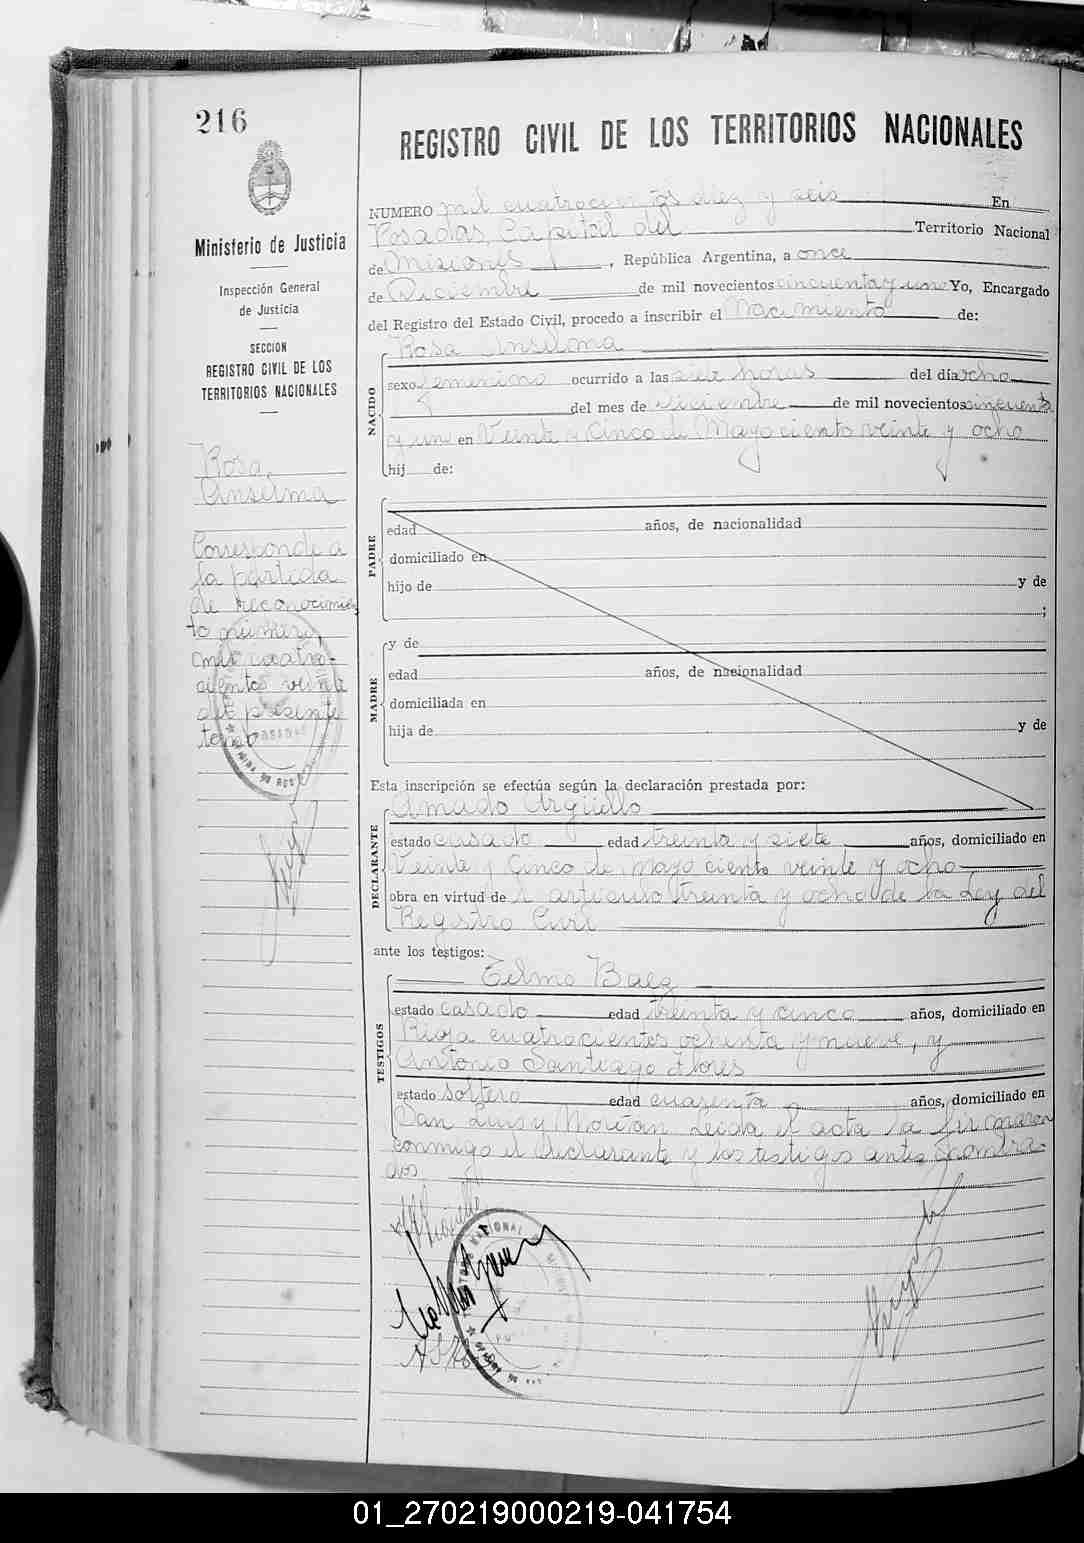 216
Ministerio de Justicia
Inspección General
de Justicia
SECCION
REGISTRO CIVIL DE LOS
TERRITORIOS NACIONALES
Rosa
Anselma
Corresponde a
la partida
de reconocimien
to número
mil cuatro-
cientos veinte
del presente
tomo
REGISTRO CIVIL DE LOS TERRITORIOS NACIONALES
NUMERO mil cuatrocientos diez y seis En
Posadas, Capital del Territorio Nacional
de Misiones, República Argentina, a once
de Diciembre de mil novecientos cincuenta y uno Yo, Encargado
del Registro del Estado Civil, procedo a inscribir el Nacimiento de:
NACIDO
Rosa Anselma
sexo femenino ocurrido a las seis horas del día ocho
del mes de Diciembre de mil novecientos cincuenta
y uno en Veinte y Cinco de Mayo ciento veinte y ocho
hij de:
PADRE
edad años, de nacionalidad
domiciliado en
hijo de y de
;
MADRE
y de
edad años, de nacionalidad
domiciliada en
hija de y de
Esta inscripción se efectúa según la declaración prestada por:
DECLARANTE
Amado Argüello
estado casado edad treinta y siete años, domiciliado en
Veinte y Cinco de Mayo ciento veinte y ocho
obra en virtud de l artículo treinta y ocho de la Ley del
Registro Civil
ante los testigos:
TESTIGOS
Telmo Baez
estado casado edad treinta y cinco años, domiciliado en
Rioja cuatrocientos ochenta y nueve, y
Antonio Santiago Flores
estado soltero edad cuarenta años, domiciliado en
San Luis y Moritán Leida el acta la firmaron
conmigo el declarante y los testigos antes nombra-
dos.
01_270219000219-041754